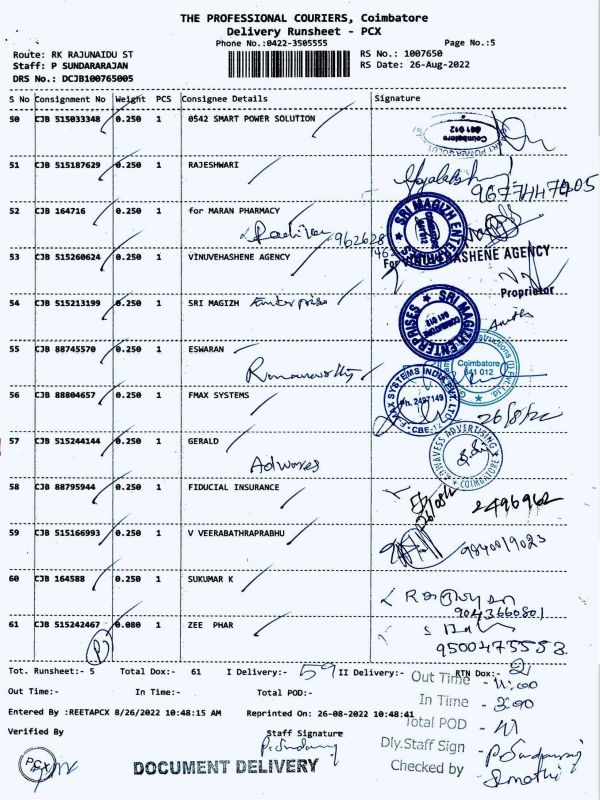 THE PROFESSIONAL COURIERS, Coimbatore
Delivery Runsheet - PCX
Phone No.:0422-3505555 Page No.:5
Route: RK RAJUNAIDU ST RS No.: 1007650
Staff: P SUNDARARAJAN RS Date: 26-Aug-2022
DRS No.: DCJB100765005
S No Consignment No Weight PCS Consignee Details Signature
50 CJB 515033348 0.250 1 0542 SMART POWER SOLUTION
Coimbatore
641 012
51 CJB 515187629 0.250 1 RAJESHWARI
52 CJB 164716 0.250 1 for MARAN PHARMACY
SRI MAGIZH ENTERPRISES
COIMBATORE
641 012
53 CJB 515260624 0.250 1 VINUVEHASHENE AGENCY
Proprietor
54 CJB 515213199 0.250 1 SRI MAGIZH Enterprise
SRI MAGIZH ENTERPRISES
COIMBATORE
641 012
55 CJB 88745570 0.250 1 ESWARAN
Coimbatore
641 012
56 CJB 88804657 0.250 1 FMAX SYSTEMS
FMAX SYSTEMS INDIA PVT. LTD.
Ph. 2497149
CBE-12
26/8/22
57 CJB 515244144 0.250 1 GERALD
Adwaves
ADWAVESS ADVERTISING
COIMBATORE
58 CJB 88795944 0.250 1 FIDUCIAL INSURANCE
26/08/22
2496962
59 CJB 515166993 0.250 1 V VEERABATHRAPRABHU
9840019023
60 CJB 164588 0.250 1 SUKUMAR K
9043660801
61 CJB 515242467 0.080 1 ZEE PHAR
9500475553
Tot. Runsheet:- 5 Total Dox:- 61 I Delivery:- 59 II Delivery:- RTN Dox:- 2
Out Time:- In Time:- Total POD:-
Out Time - 11:00
In Time - 3:00
Entered By :REETAPCX 8/26/2022 10:48:15 AM Reprinted On: 26-08-2022 10:48:41
Total POD - 41
Verified By Staff Signature
Dly.Staff Sign
Checked by
PCX
DOCUMENT DELIVERY